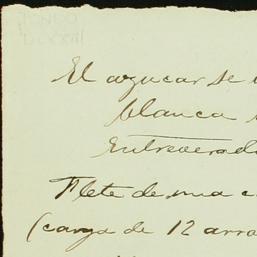 FONDO
El azucar se
blanca
Entreverad
Flete de una c
(carga de 12 arro